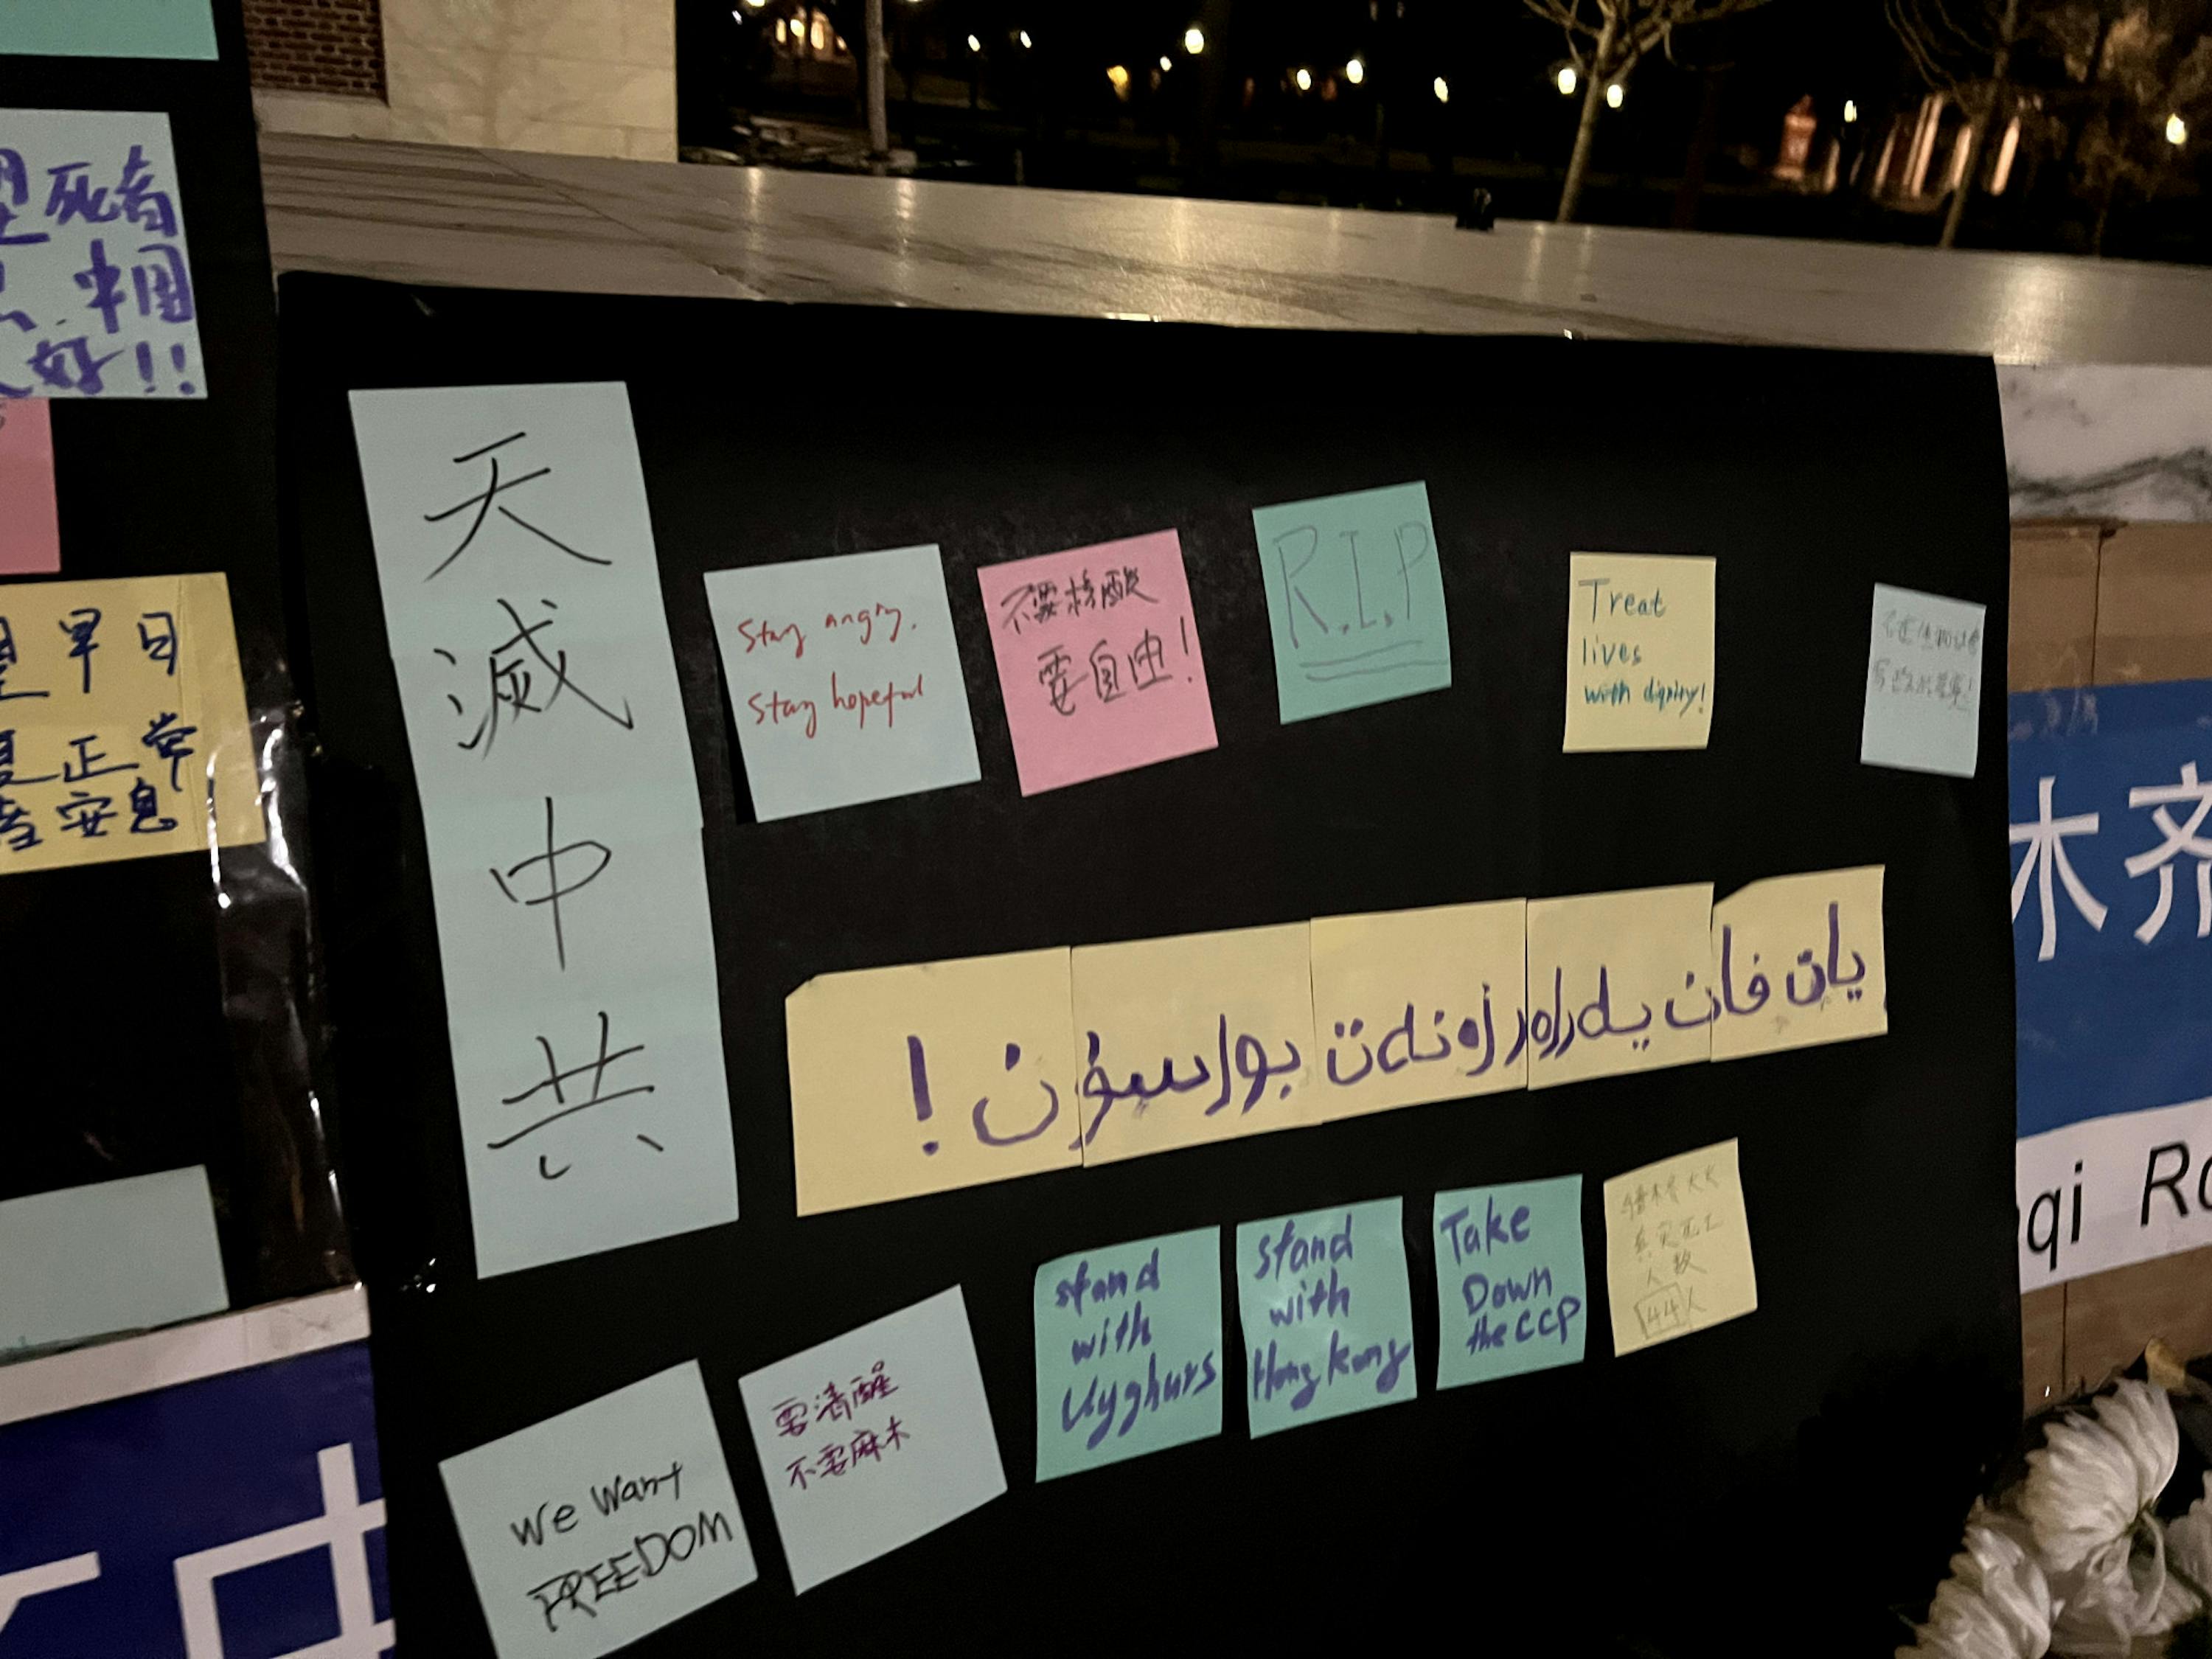 死者
中国
好!!
早日
正常
安息
天
滅
中
共
Stay angry.
Stay hopeful
不要核酸
要自由!
R.I.P
Treat
lives
with dignity!
يان فان يەراەر
بولسۇن !
We Want
FREEDOM
要清醒
不要麻木
stand
with
Uyghurs
Stand
with
Hong Kong
Take
Down
the CCP
真实死亡
人数
44人
木齐
qi
中